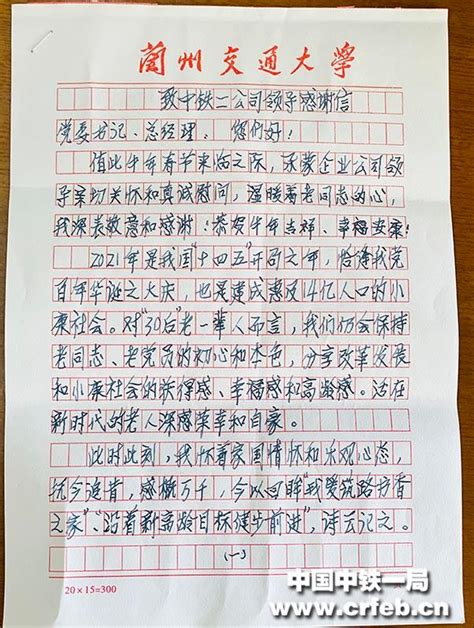 蘭州交通大學
致中铁一公司领导感谢信
党委书记、总经理：您们好！
值此牛年春节来临之际，承蒙企业公司领
导亲切关怀和真诚慰问，温暖着老同志的心，
我深表敬意和感谢！恭发牛年吉祥、幸福安康！
2021年是我国"十四五"开局之年，恰逢我党
百年华诞之大庆，也是建成惠及14亿人口的小
康社会。对"30后"老一辈人而言，我们仍会保持
老同志、老党员的初心和本色，分享改革发展
和小康社会的获得感、幸福感和高龄感。活在
新时代的老人深感荣幸和自豪。
此时此刻，我怀着家国情怀和乐观心态，
抚今追昔，感概万千，今以回眸"我爱筑路书香
之家"、"沿着新高龄目标健步前进"，诗云记之。
(一)
20×15=300
中国中铁一局
www.crfeb.cn